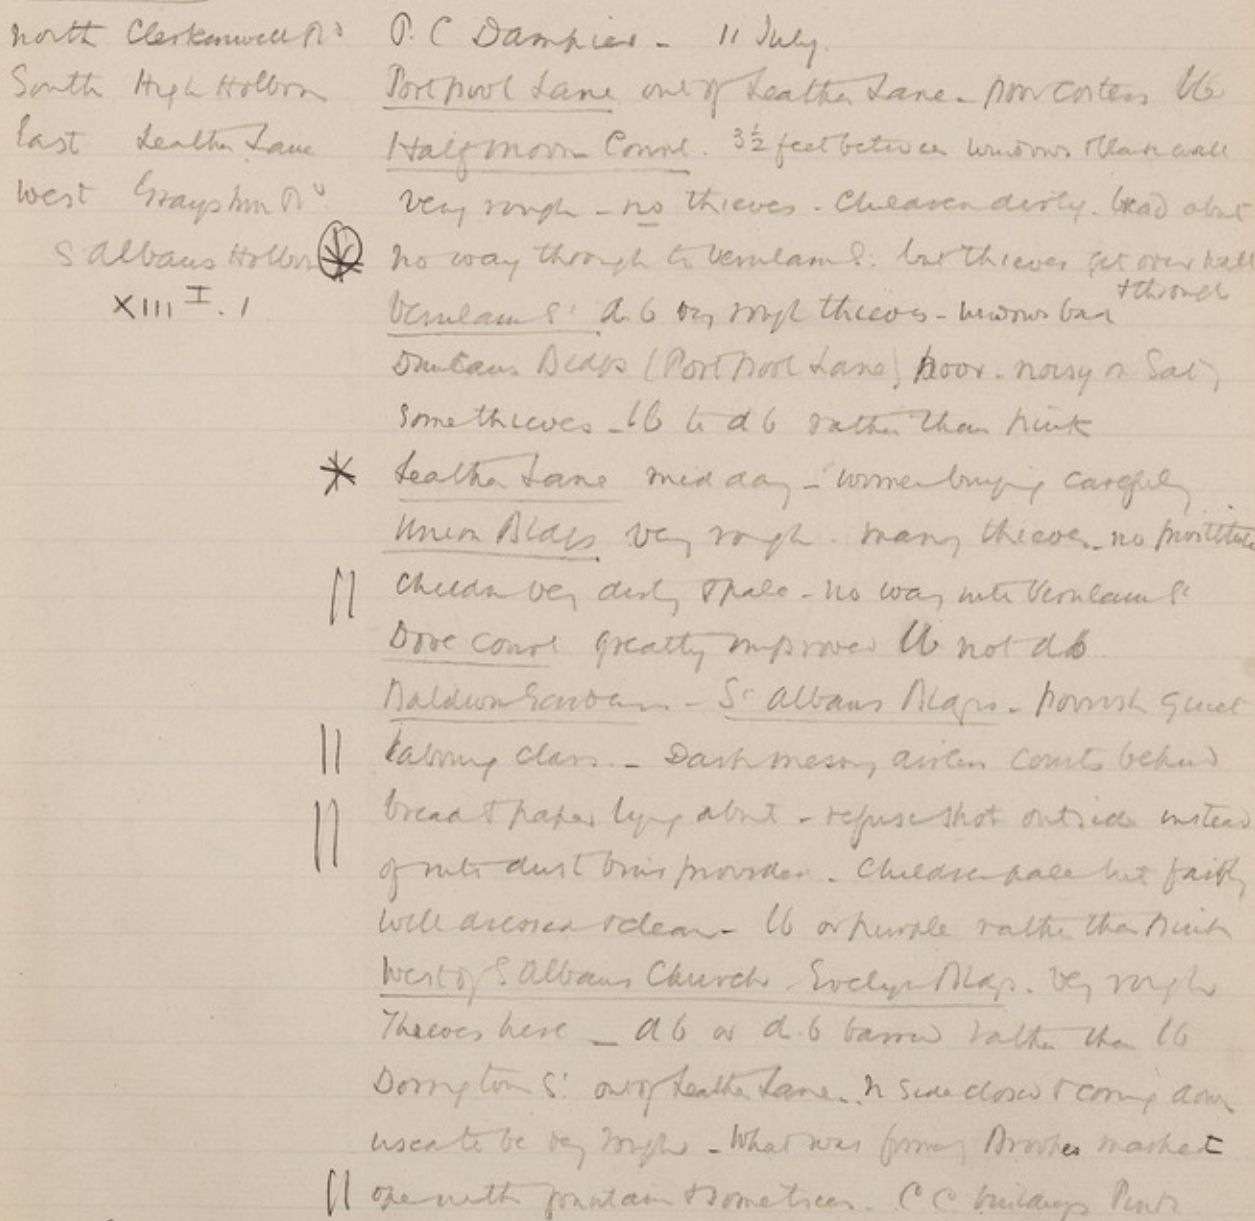 North Clerkenwell Rd
South High Holborn
East Leather Lane
West Grays Inn Rd
S Albans Holborn
XIII I. 1
P. C Dampier - 11 July.
Portpool Lane out of Leather Lane - poor costers lb
Half moon Court. 3½ feet between windows & blank wall
very rough - no thieves. Children dirty. bread about
no way through to Verulam St: but thieves get over wall
& through
Verulam St d.b very rough thieves - windows bad
Bldgs (Portpool Lane) poor - noisy on Saty
some thieves - lb to d b rather than pink
Leather Lane mid day - women buying carefully
Union Bldgs very rough. many thieves - no prostitutes
Children very dirty & pale - no way into Verulam St
Dove Court greatly improved lb not d b.
Baldwin Gardens - St Albans Bldgs - poorish quiet
labouring class. - Dark messy airless courts behind
bread & paper lying about - refuse shot outside instead
of into dust bins provided. Children pale but fairly
well dressed & clean - lb or purple rather than pink
West of S Albans Church Evelyn Bldgs. very rough
Thieves here - d b or d.b barred rather than lb
Dorrington St: out of Leather Lane. N side closed & coming down
used to be very rough - What was formerly Brookes market
open with fountain & some trees. C C buildings Pink